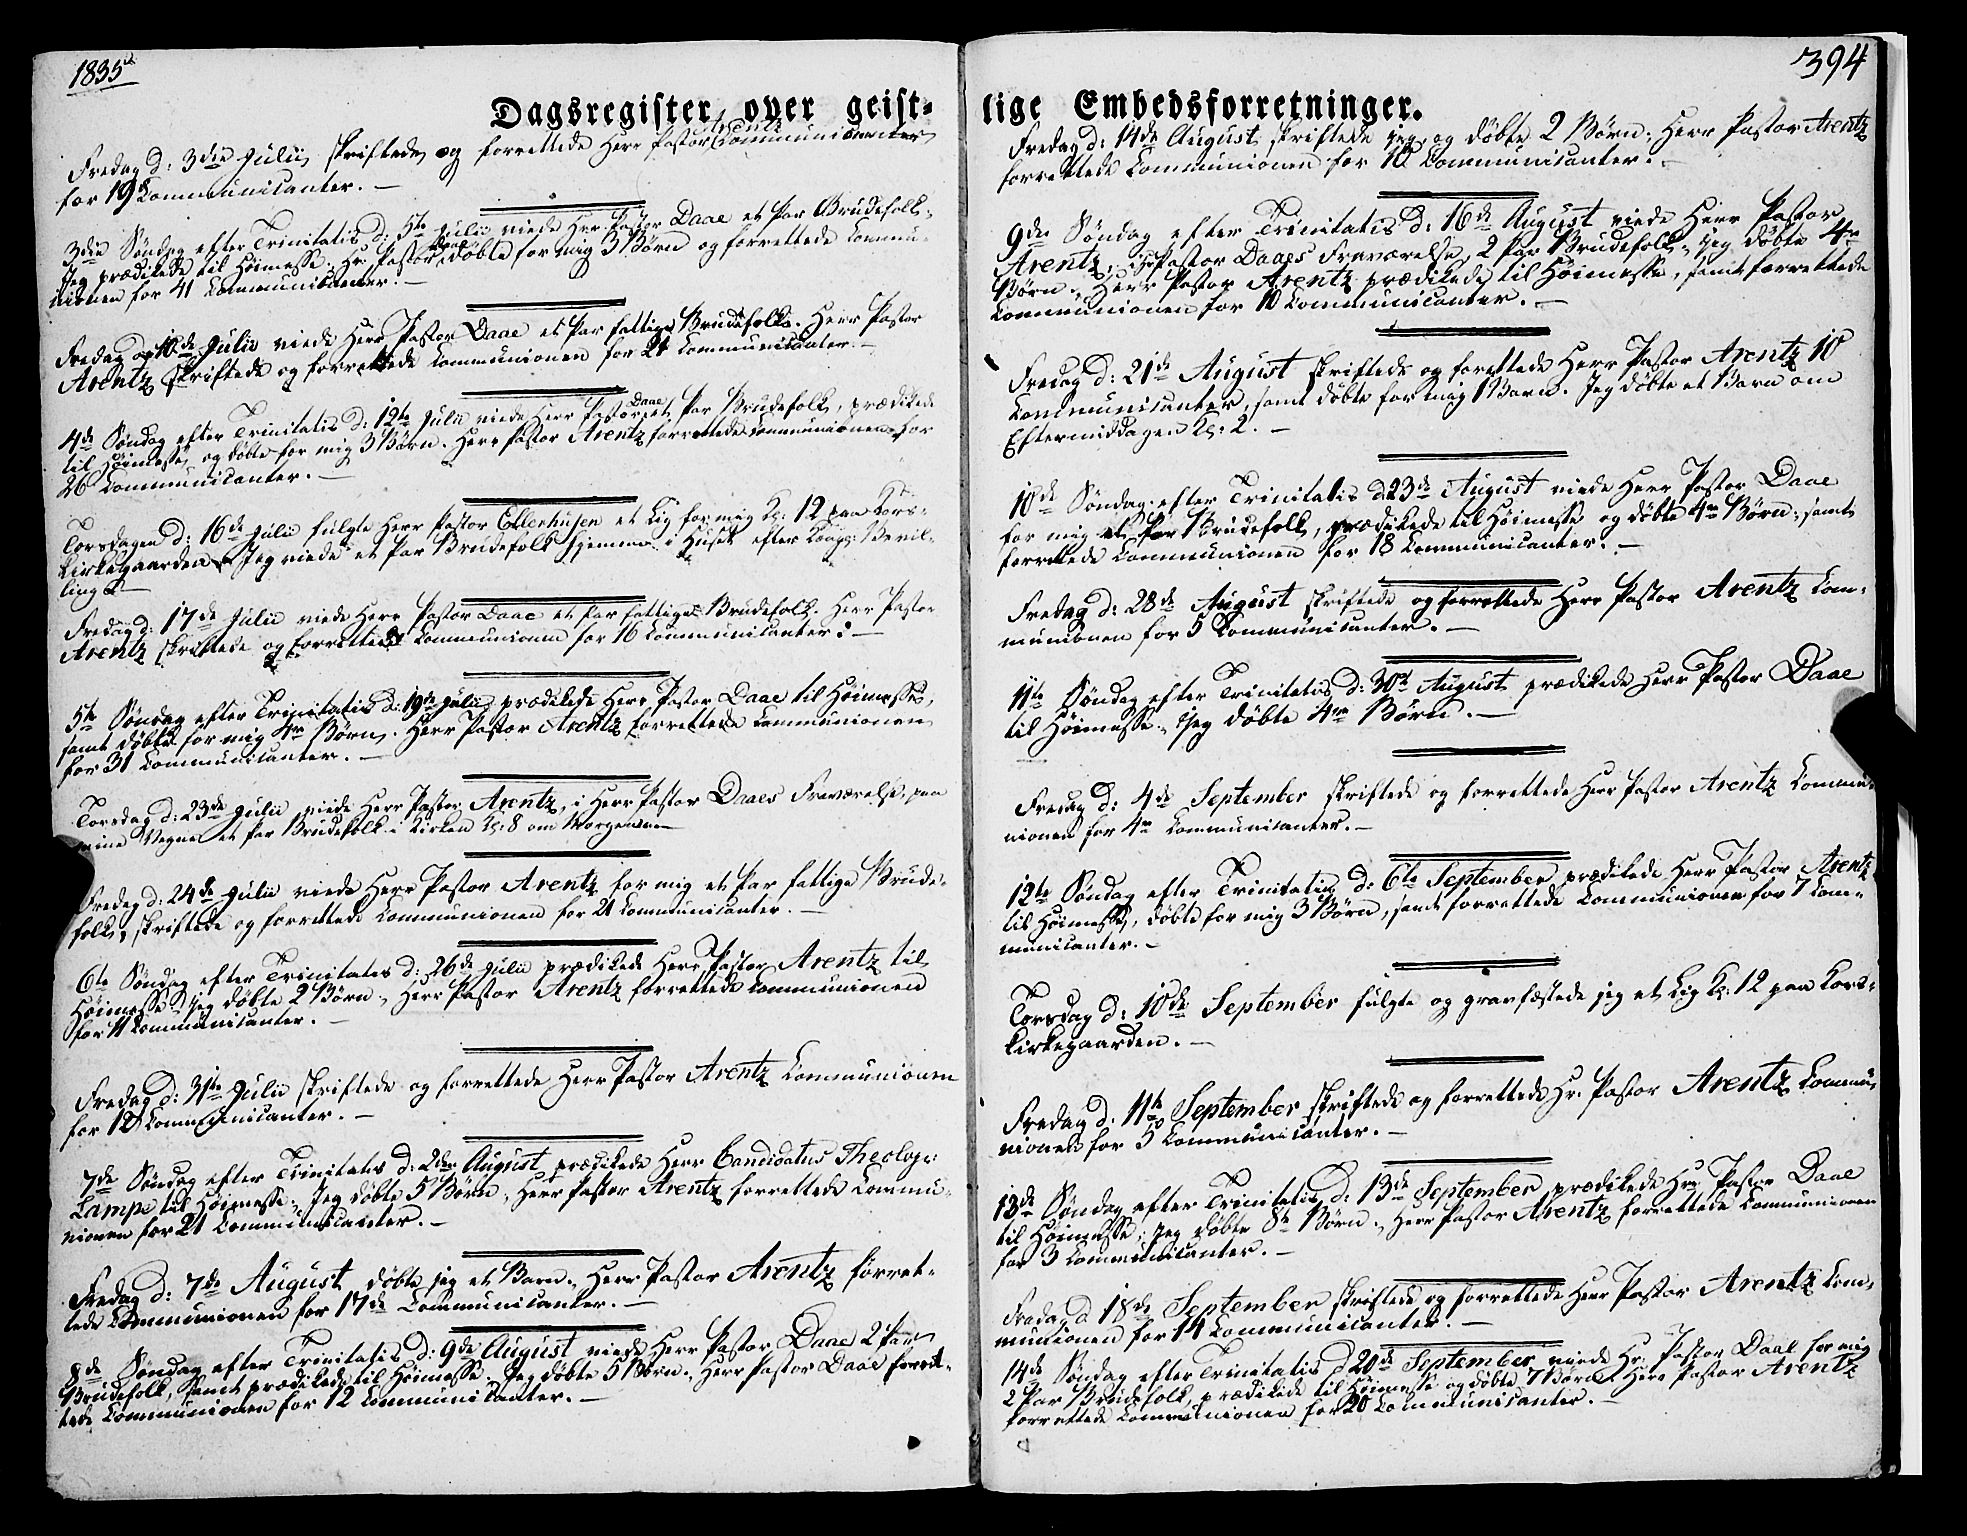 1835
394
Dagsregister over geist-
lige Embedsforretninger.
Fredag d: 3die Julii skriftede og forrettede Herr Pastor Arentz Communicanter
for 19 Communicanter. —
3die Søndag efter Trinitatis d: 5te Julii viede Herr Pastor Daae et Par Brudefolk.
Jeg prædikede til Høimesse. Hr. Pastor Daae døbte for mig 3 Børn og forrettede Commu-
nionen for 41 Communicanter. —
Fredag d: 10de Julii viede Herr Pastor Daae et Par fattige Brudefolk. Herr Pastor
Arentz skriftede og forrettede Communionen for 21 Communicanter. —
4de Søndag efter Trinitatis d: 12te Julii viede Herr Pastor Daae et Par Brudefolk, prædikede
til Høimesse og døbte for mig 3 Børn. Herr Pastor Arentz forrettede Communionen for
26 Communicanter. —
Torsdagen d: 16de Julii fulgte Herr Pastor Ellerhusen et Lig for mig Kl: 12 paa Kors-
Kirkegaarden. Jeg viede et Par Brudefolk hjemme i Huset efter Kongl: Bevil-
ling. —
Fredag d: 17de Julii viede Herr Pastor Daae et Par fattige Brudefolk. Herr Pastor
Arentz skriftede og forrettede Communionen for 16 Communicanter. —
5te Søndag efter Trinitatis d: 19de Julii prædikede Herr Pastor Daae til Høimesse,
samt døbte for mig 4re Børn. Herr Pastor Arentz forrettede Communionen
for 31 Communicanter. —
Torsdag d: 23de Julii viede Herr Pastor Arentz, i Herr Pastor Daaes Fraværelse, paa
mine Vegne et Par Brudefolk i Kirken Kl: 8 om Morgenen —
Fredag d: 24de Julii viede Herr Pastor Arentz for mig et Par fattige Brude-
folk, skriftede og forrettede Communionen for 21 Communicanter. —
6te Søndag efter Trinitatis d: 26de Julii prædikede Herr Pastor Arentz til
Høimesse. Jeg døbte 2 Børn. Herr Pastor Arentz forrettede Communionen
for 11 Communicanter. —
Fredag d: 31te Julii skriftede og forrettede Herr Pastor Arentz Communionen
for 10 Communicanter. —
7de Søndag efter Trinitatis d: 2den August prædikede Herr Candidatus Theolog:
Lampe til Høimesse. Jeg døbte 5 Børn. Herr Pastor Arentz forrettede Commu-
nionen for 21 Communicanter. —
Fredag d: 7de August døbte jeg et Barn. Herr Pastor Arentz forret-
tede Communionen for 17de Communicanter. —
8de Søndag efter Trinitatis d: 9de August viede Herr Pastor Daae 2 Par
Brudefolk, samt prædikede til Høimesse. Jeg døbte 5 Børn. Herr Pastor Daae forret-
tede Communionen for 12 Communicanter. —
Fredag d: 14de August skriftede jeg, og døbte 2 Børn. Herr Pastor Arentz
forrettede Communionen for 10 Communicanter. —
9de Søndag efter Trinitatis d: 16de August viede Herr Pastor
Arentz, i Hr Pastor Daaes Fraværelse, 2 Par Brudefolk. Jeg døbte 4re
Børn. Herr Pastor Arentz prædikede til Høimesse, samt forrettede
Communionen for 10 Communicanter. —
Fredag d: 21de August skriftede og forrettede Herr Pastor Arentz 10
Communicanter, samt døbte for mig 1 Barn. Jeg døbte et Barn om
Eftermiddagen Kl: 2. —
10de Søndag efter Trinitatis d 23de August viede Herr Pastor Daae
for mig et Par Brudefolk, prædikede til Høimesse og døbte 4re Børn, samt
forrettede Communionen for 18 Communicanter. —
Fredag d: 28de August skriftede og forrettede Herr Pastor Arentz Com-
munionen for 5 Communicanter. —
11te Søndag efter Trinitatis d: 30te August prædikede Herr Pastor Daae
til Høimesse. Jeg døbte 4re Børn. —
Fredag d: 4de September skriftede og forrettede Herr Pastor Arentz Commu-
nionen for 4re Communicanter. —
12te Søndag efter Trinitatis d: 6te September prædikede Herr Pastor Arentz
til Høimesse, døbte for mig 3 Børn, samt forrettede Communionen for 7 Com-
municanter. —
Torsdag d: 10de September fulgte og gravfæstede jeg et Lig Kl: 12 paa Kors-
Kirkegaarden. —
Fredag d: 11te September skriftede og forrettede Hr. Pastor Arentz Commu-
nionen for 5 Communicanter. —
13de Søndag efter Trinitatis d: 13de September prædikede Hr. Pastor Daae
til Høimesse. Jeg døbte 8te Børn. Herr Pastor Arentz forrettede Communionen
for 3 Communicanter. —
Fredag d 18de September skriftede og forrettede Herr Pastor Arentz Com-
munionen for 14 Communicanter. —
14de Søndag efter Trinitatis d 20de September viede Hr. Pastor Daae for mig
2 Par Brudefolk, prædikede til Høimesse og døbte 7 Børn. Herr Pastor Arentz
forrettede Communionen for 20 Communicanter. —